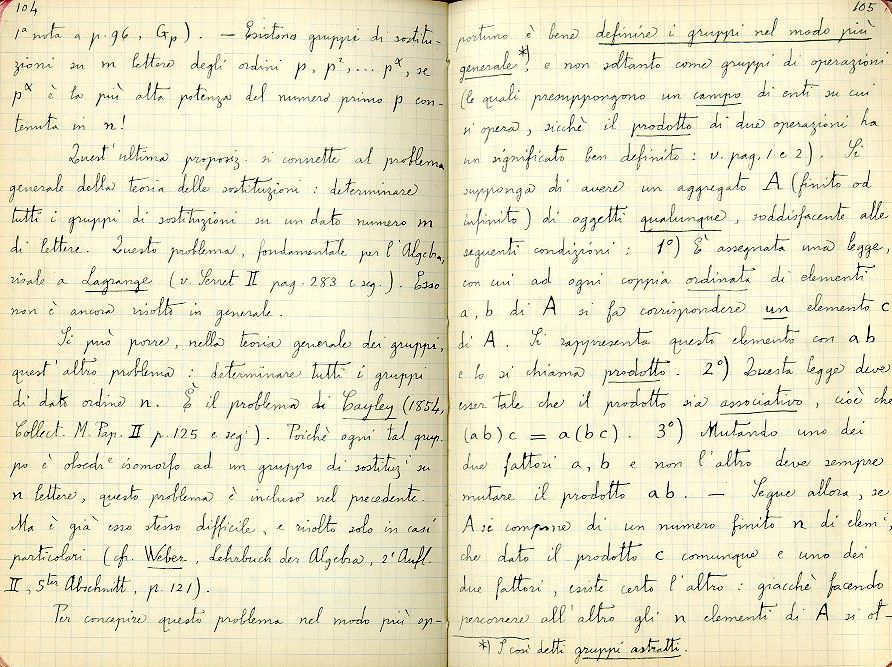 104
1ª nota a p. 96, Gp). — Esistono gruppi di sostitu-
zioni su m lettere degli ordini p, p², ... p^α, se
p^α è la più alta potenza del numero primo p con-
tenuta in n!
Quest'ultima proposiz. si connette al problema
generale della teoria delle sostituzioni : determinare
tutti i gruppi di sostituzioni su un dato numero m
di lettere. Questo problema, fondamentale per l'Algebra,
risale a Lagrange (v. Serret II pag. 283 e seg.). Esso
non è ancora risolto in generale.
Si può porre, nella teoria generale dei gruppi,
quest'altro problema : determinare tutti i gruppi
di dato ordine n. È il problema di Cayley (1854,
Collect. M. Pap. II p. 125 e segi). Poichè ogni tal grup-
po è oloedre isomorfo ad un gruppo di sostituzi su
n lettere, questo problema è incluso nel precedente.
Ma è già esso stesso difficile, e risolto solo in casi
particolari (cfr. Weber, Lehrbuch der Algebra, 2e Aufl.
II, 5ter Abschnitt, p. 121).
Per concepire questo problema nel modo più op-
105
portuno è bene definire i gruppi nel modo più
generale*), e non soltanto come gruppi di operazioni
(le quali presuppongono un campo di enti su cui
si opera, sicchè il prodotto di due operazioni ha
un significato ben definito : v. pag. 1 e 2). Si
supponga di avere un aggregato A (finito od
infinito) di oggetti qualunque, soddisfacente alle
seguenti condizioni : 1º) È assegnata una legge,
con cui ad ogni coppia ordinata di elementi
a, b di A si fa corrispondere un elemento c
di A. Si rappresenta questo elemento con ab
e lo si chiama prodotto. 2º) Questa legge deve
esser tale che il prodotto sia associativo, cioè che
(ab)c = a(bc). 3º) Mutando uno dei
due fattori a, b e non l'altro deve sempre
mutare il prodotto ab. — Segue allora, se
A si compone di un numero finito n di elemi,
che dato il prodotto c comunque e uno dei
due fattori, esiste certo l'altro : giacchè facendo
percorrere all'altro gli n elementi di A si ot-
*) I così detti gruppi astratti.